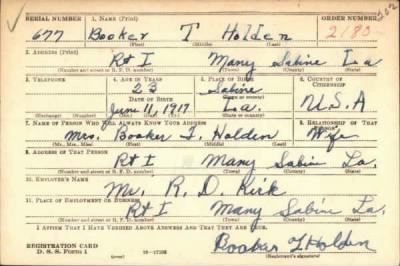 SERIAL NUMBER 1. NAME (Print) ORDER NUMBER
677 Booker T Holden 2180
(First) (Middle) (Last)
2. ADDRESS (Print)
Rt I Many Sabine La
(Number and street or R. F. D. number) (Town) (County) (State)
3. TELEPHONE 4. AGE IN YEARS 5. PLACE OF BIRTH 6. COUNTRY OF CITIZENSHIP
23 Sabine
DATE OF BIRTH (Town or county)
June 11, 1917 La. U.S.A
(Exchange) (No.) (Mo.) (Day) (Yr.) (State or country)
7. NAME OF PERSON WHO WILL ALWAYS KNOW YOUR ADDRESS 8. RELATIONSHIP OF THAT PERSON
Mrs. Booker T. Holden Wife
(Mr., Mrs., Miss) (First) (Middle) (Last)
9. ADDRESS OF THAT PERSON
Rt I Many Sabine La.
(Number and street or R. F. D. number) (Town) (County) (State)
10. EMPLOYER'S NAME
Mr. R. D. Kirk
11. PLACE OF EMPLOYMENT OR BUSINESS
Rt I Many Sabine La.
(Number and street or R. F. D. number) (Town) (County) (State)
I AFFIRM THAT I HAVE VERIFIED ABOVE ANSWERS AND THAT THEY ARE TRUE.
REGISTRATION CARD Booker T Holden
D. S. S. FORM 1 (over) (Registrant's signature)